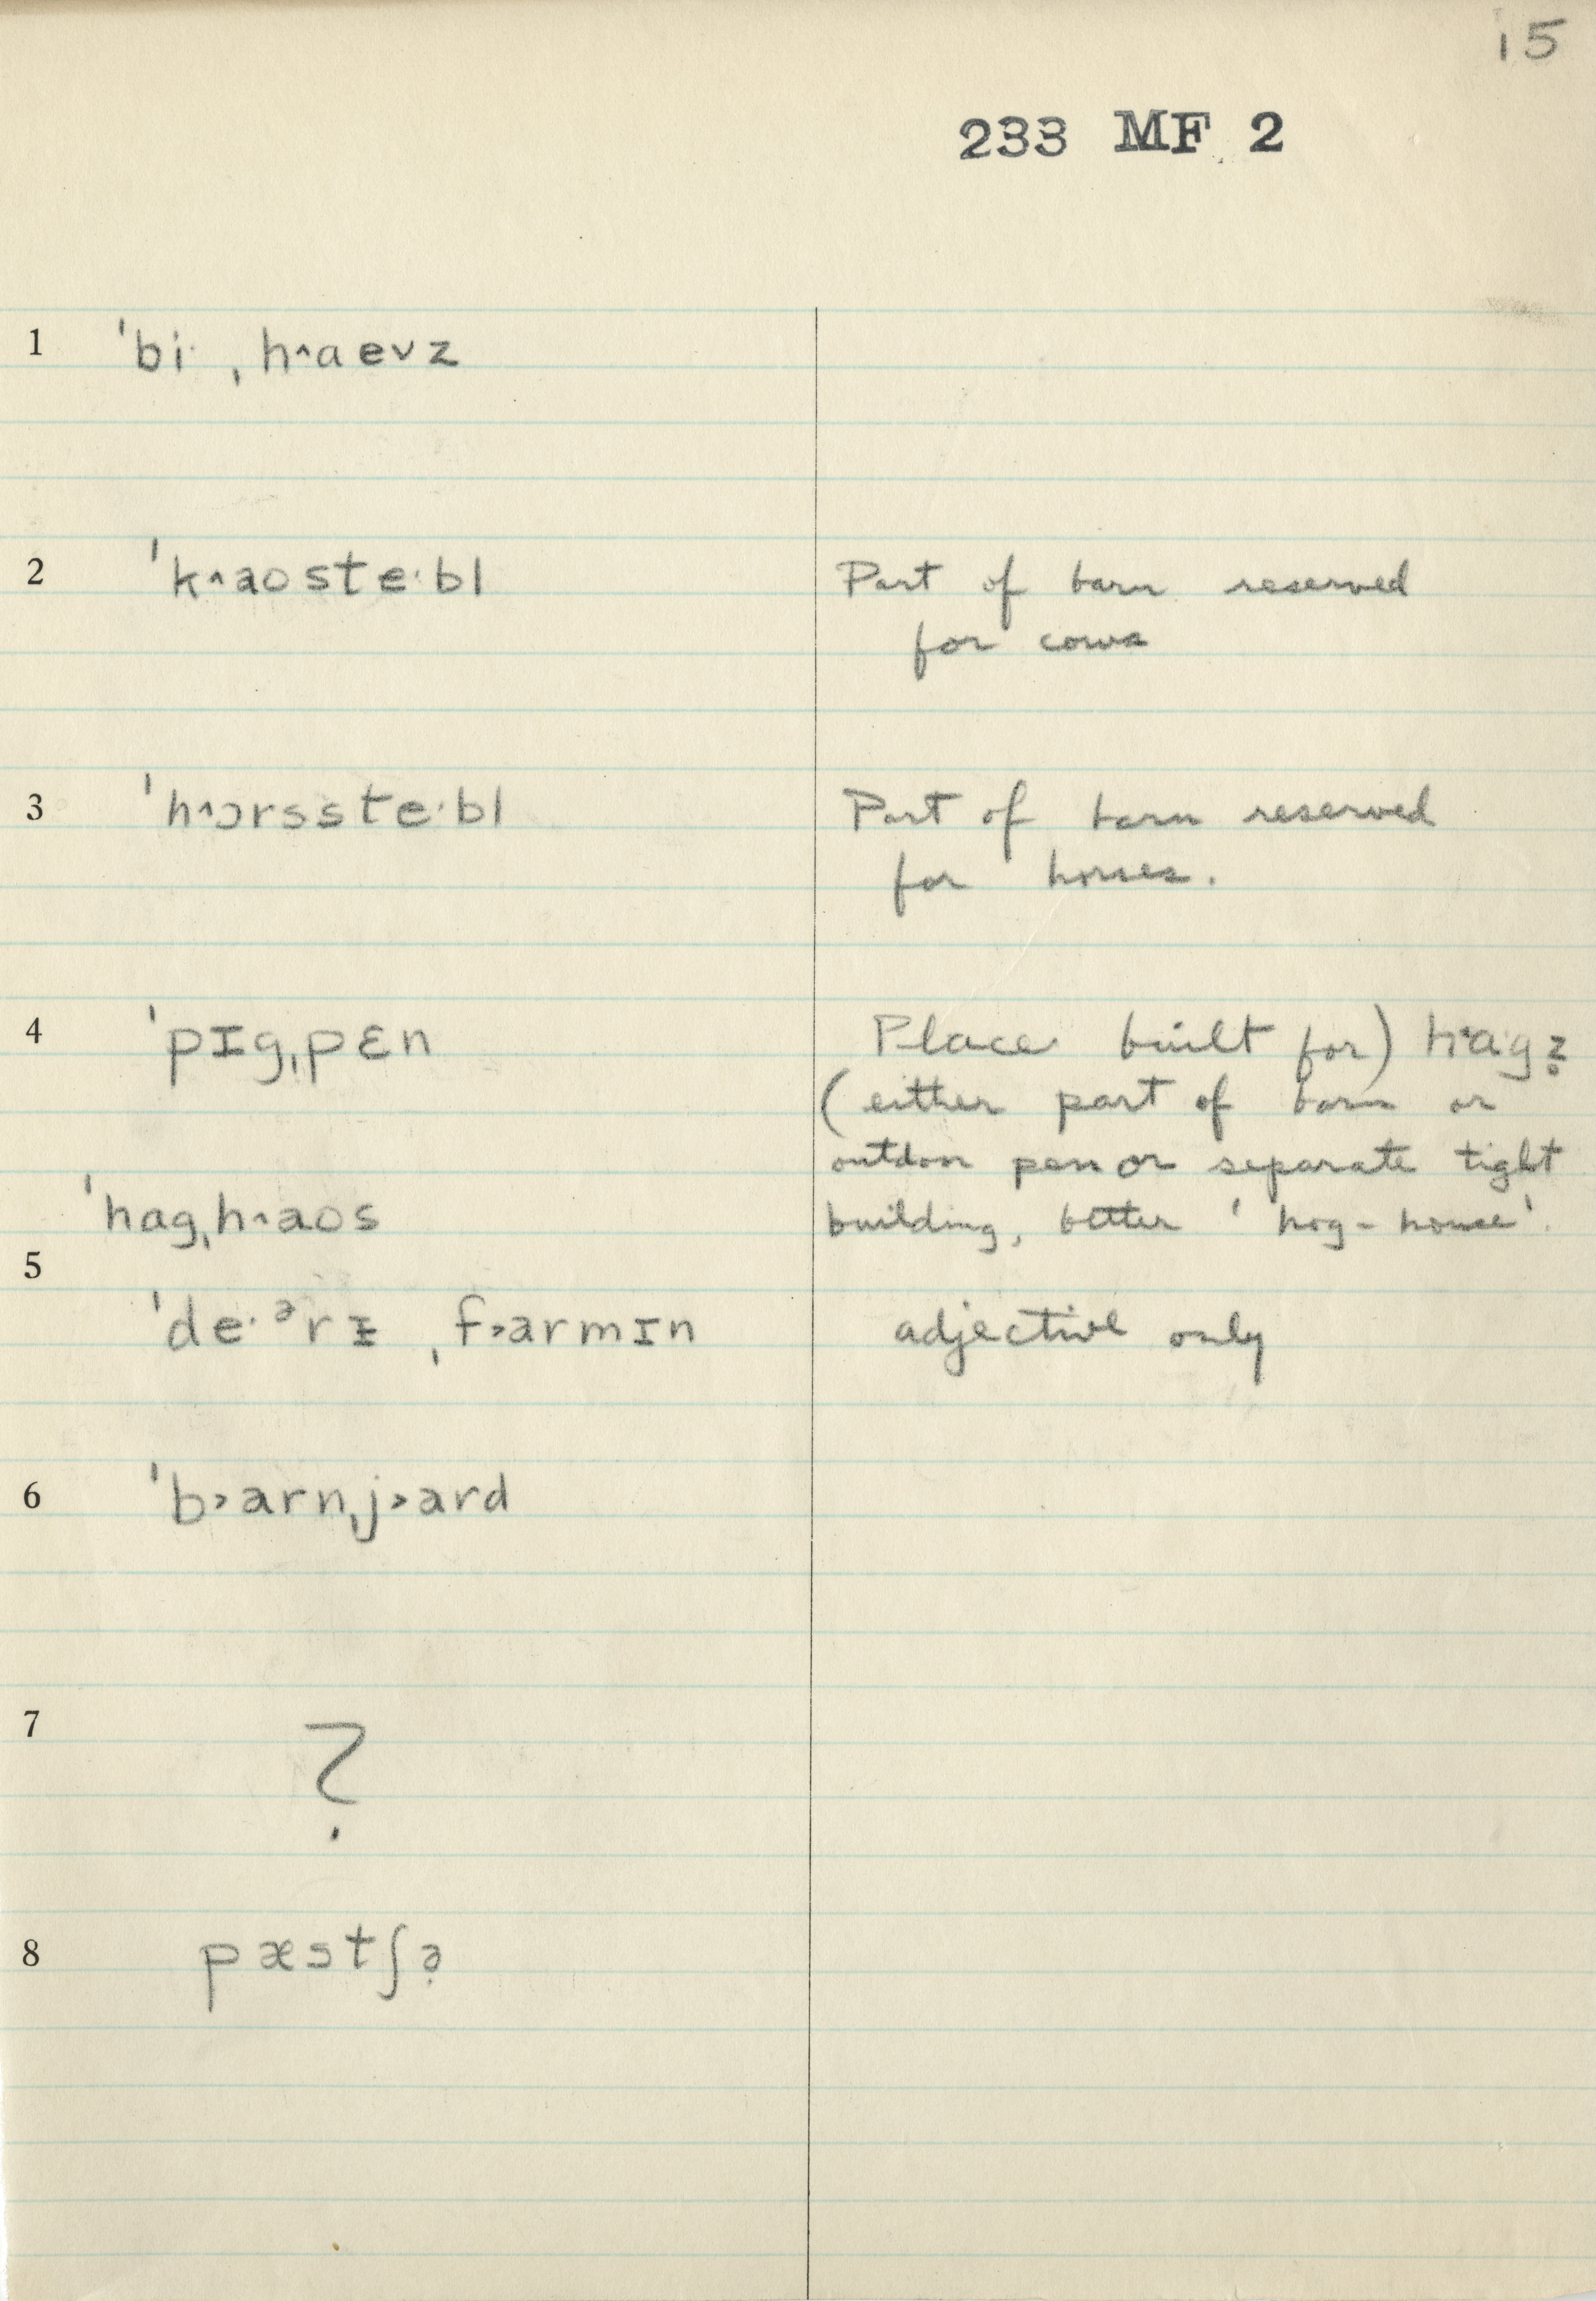 15
233 MF 2
1 ˈbi· ˌh˄aevz
2 ˈk˄aoste·bl Part of barn reserved
for cows
3 ˈh˄ɔrsste·bl Part of barn reserved
for horses.
4 ˈpɪgˌpɛn Place built for) h˄a·gz̥
(either part of barn or
outdoor pen or separate tight
ˈhagˌh˄aos building, better 'hog-house'.
5
ˈde·ᵊrɪ̵ ˌf˃armɪn adjective only
6 ˈb˃arnˌj˃ard
7 ?
8 pæstʃə̣